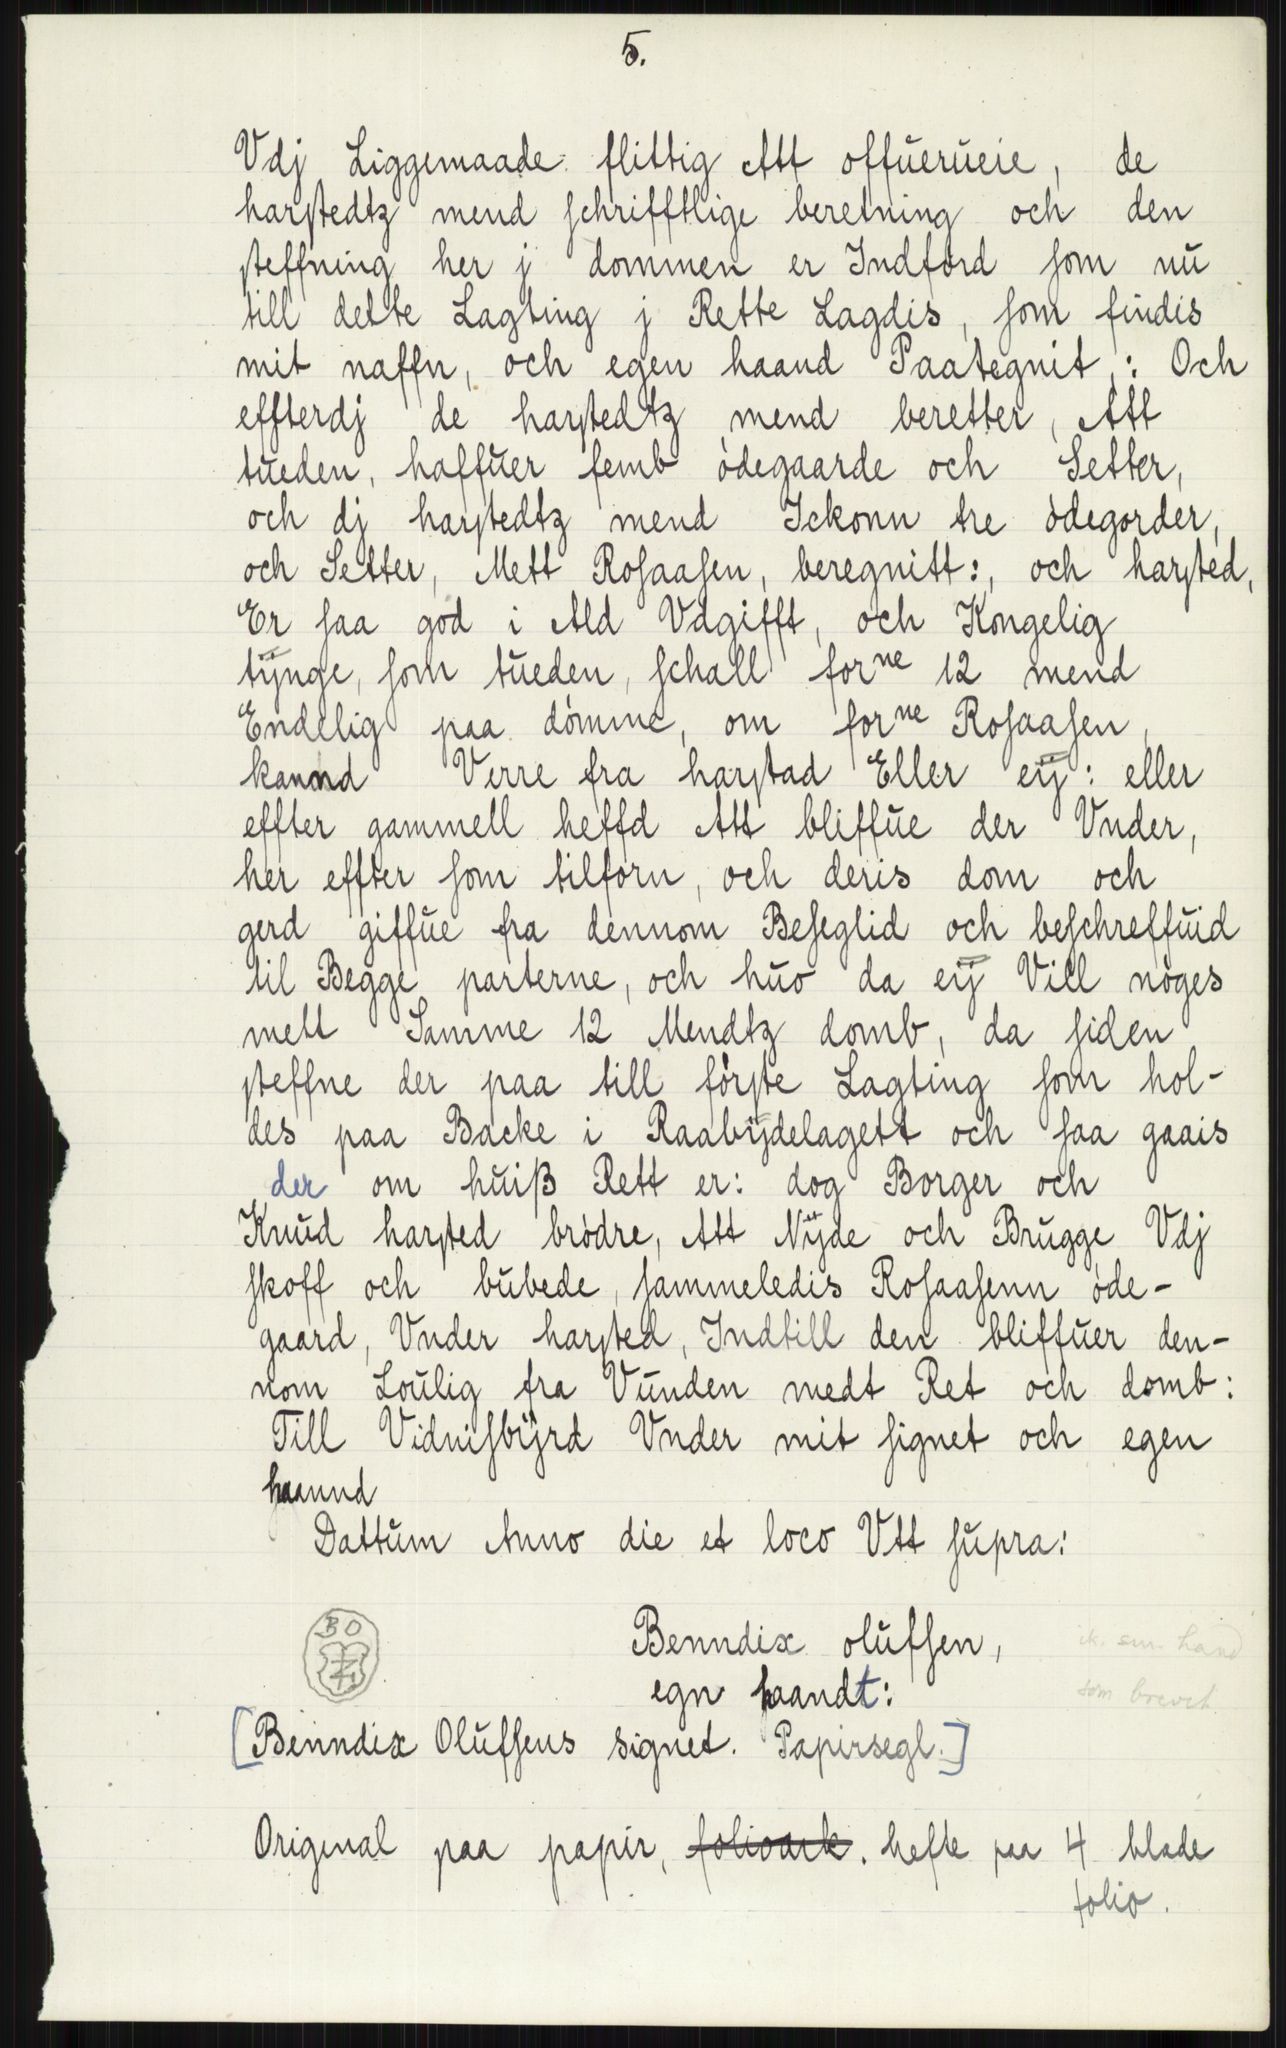 5.
Vdj Liggemaade flittig Att offuerueie, de
harstedtz mend schrifftlige beretning och den
steffning her j dommen er Indførd som nu
till dette Lagting j Rette Lagdis, som findis
mit naffn, och egen haand Paategnit,: Och
effterdj de harstedtz mend beretter, Att
tueden, haffuer femb ødegaarde och Setter,
och dj harstedtz mend Ickonn tre ødegorder,
och Setter, Mett Rosaasen, beregnitt:, och harsted,
Er saa god i Ald Vdgifft, och Kongelig
tÿnge, som tueden, schall forne 12 mend
Endelig paa dømme, om forne Rosaasen,
kannd Verre fra harstad Eller eÿ: eller
effter gammell heffd Att bliffue der Vnder,
her effter som tilforn, och deris dom och
gerd giffue fra dennom Beseglid och beschreffuid
til Begge parterne, och huo da eÿ Vill nøges
mett Samme 12 Mendtz domb, da siden
steffne der paa till første Lagting som hol-
des paa Backe i Raabÿdelagett och saa gaais
der om huiß Rett er: dog Borger och
Knud harsted brødre, Att Nÿde och Brugge Vdj
skoff och bubede, sammeledis Rosaasenn øde-
gaard, Vnder harsted, Indtill den bliffuer den-
nom Loulig fra Vunden medt Ret och domb:
Till Vidnisbÿrd Vnder mit signet och egen
haannd
Dattum Anno die et loco Vtt supra:
BO
Benndix olufsen,
egn haandt:
som brevet
[Benndix Olufsens signet. Papirsegl.]
Original paa papir, folioark. hefte paa 4 blade
folio.